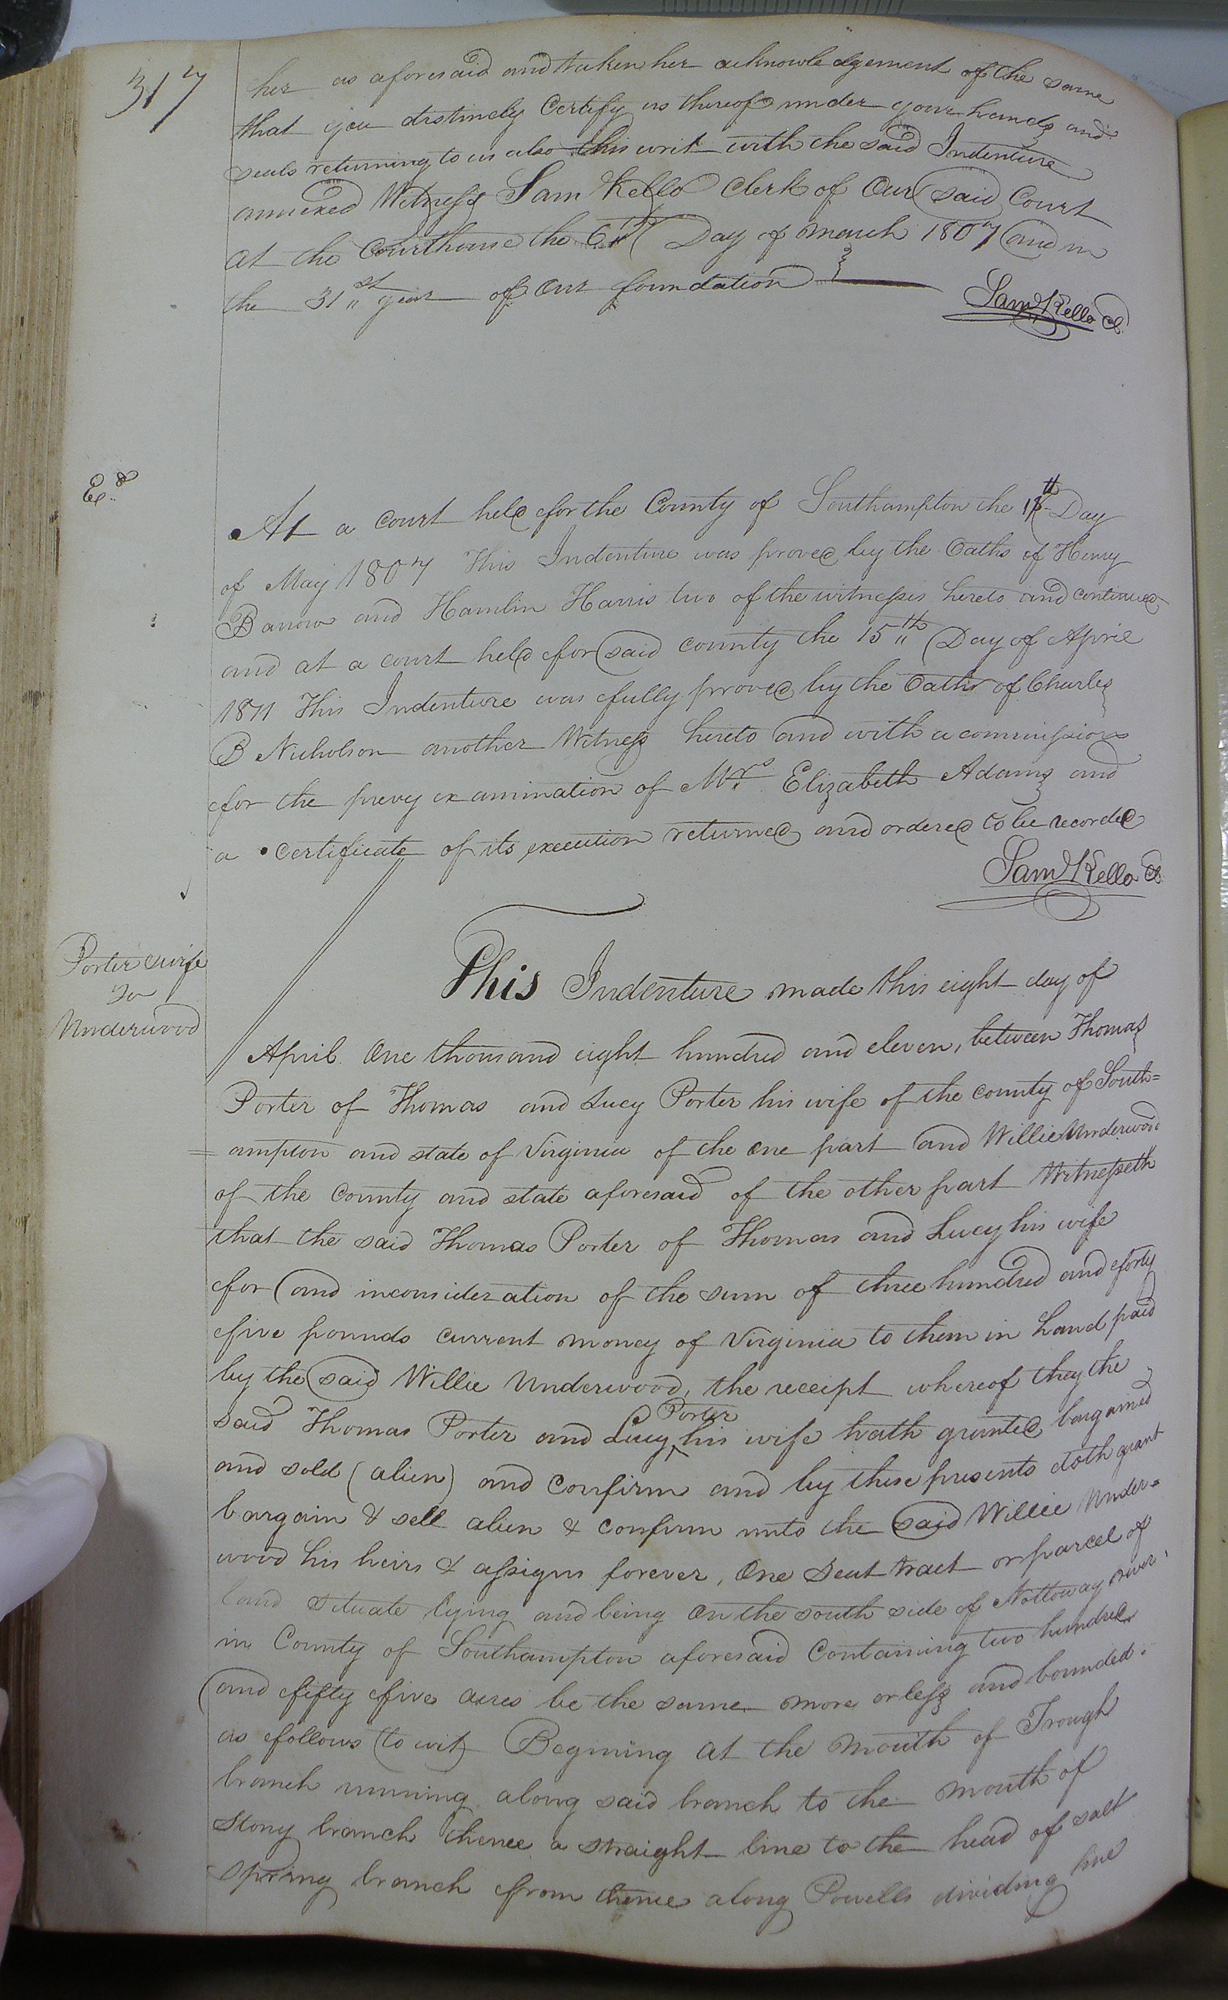 317
her as aforesaid and taken her acknowledgement of the same
that you distinctly Certify us thereof under your hands and
seals returning to us also this writ with the said Indenture
annexed Witness Sam Kello Clerk of Our said Court
at the Courthouse the 6th Day of march 1807 and in
the 31st year of Our foundation
Saml Kello Cl.
Ex.d
At a court held for the County of Southampton the Day
of May 1807 This Indenture was proved by the Oaths of Henry
Barrow and Hamlin Harris two of the witnesses hereto and continued
and at a court held for said county the 15th Day of April
1811 This Indenture was fully proved by the Oaths of Charles
B Nicholson another Witness hereto and with a commission
for the prevy examination of Mrs. Elizabeth Adams and
a certificate of its execution returned and ordered to be recorded
Saml Kello Cl.
Porter & wife
To
Underwood
This Indenture made this eight day of
April One thousand eight hundred and eleven, between Thomas
Porter of Thomas and Lucy Porter his wife of the county of South=
=ampton and state of Virginia of the one part and Willie Underwood
of the County and state aforesaid of the other part Witnesseth
that the said Thomas Porter of Thomas and Lucy his wife
for and in consideration of the sum of three hundred and forty
five pounds current money of Virginia to them in hand paid
by the said Willie Underwood, the receipt whereof they the
said Thomas Porter and Lucy Porter his wife hath granted bargained
and sold (alien) and confirm and by these presents doth grant
bargain & sell alien & confirm unto the said Willie Under=
wood his heirs & assigns forever, One Seat tract or parcel of
land situate lying and being on the south side of Nottoway river
in County of Southampton aforesaid Containing two hundred
and fifty five acres be the same more or less and bounded
as follows (to wit) Begining at the mouth of Trough
branch running along said branch to the mouth of
Stony branch thence a straight line to the head of salt
spring branch from thence along Powells dividing line